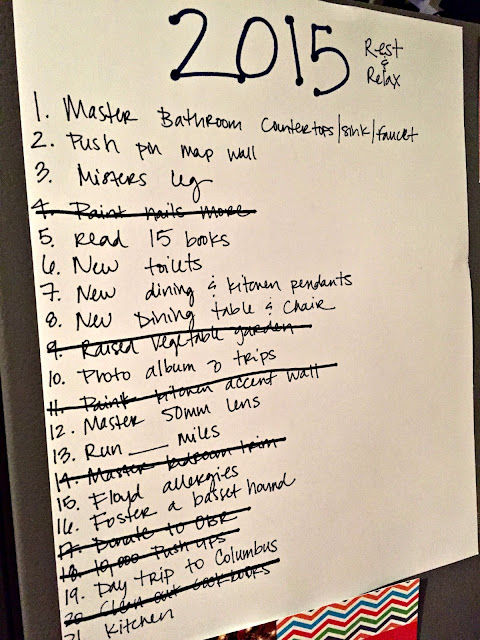 2015
Rest
&
Relax
1. Master Bathroom countertops/sink/faucet
2. Push pin map wall
3. Misters leg
4. Paint nails more
5. read 15 books
6. New toilets
7. New dining & kitchen pendants
8. New Dining table & Chair
9. Raised vegetable garden
10. Photo album 3 trips
11. Paint kitchen accent wall
12. Master 50mm lens
13. Run ___ miles
14. Master bedroom trim
15. Floyd allergies
16. Foster a basset hound
17. Donate to OBR
18. 10,000 Push ups
19. Day trip to Columbus
20. Clean out cookbooks
21. Kitchen